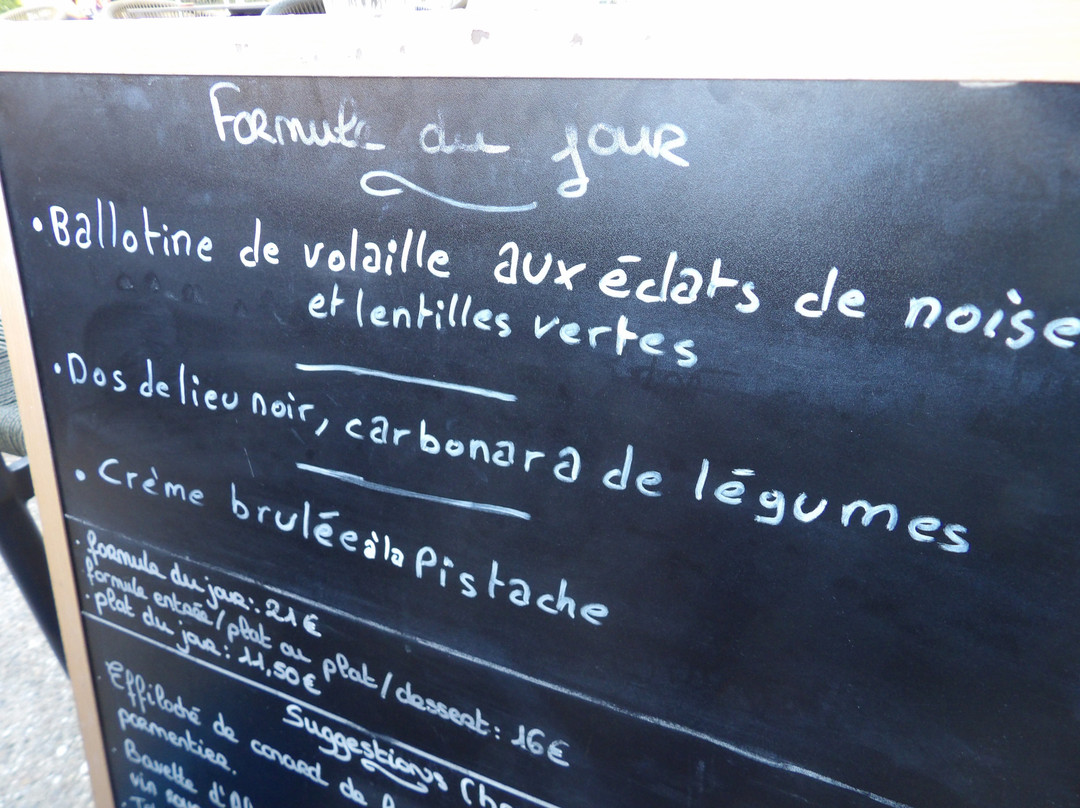 Formule du jour
• Ballotine de volaille aux éclats de noise
et lentilles vertes
• Dos de lieu noir, carbonara de légumes
• Crème brulée à la Pistache
• formule du jour: 21€
formule entrée/plat ou plat/dessert: 16€
• plat du jour: 11,50€
Suggestions (ho
Effiloché de canard de
parmentier.
Bavette d'
vin